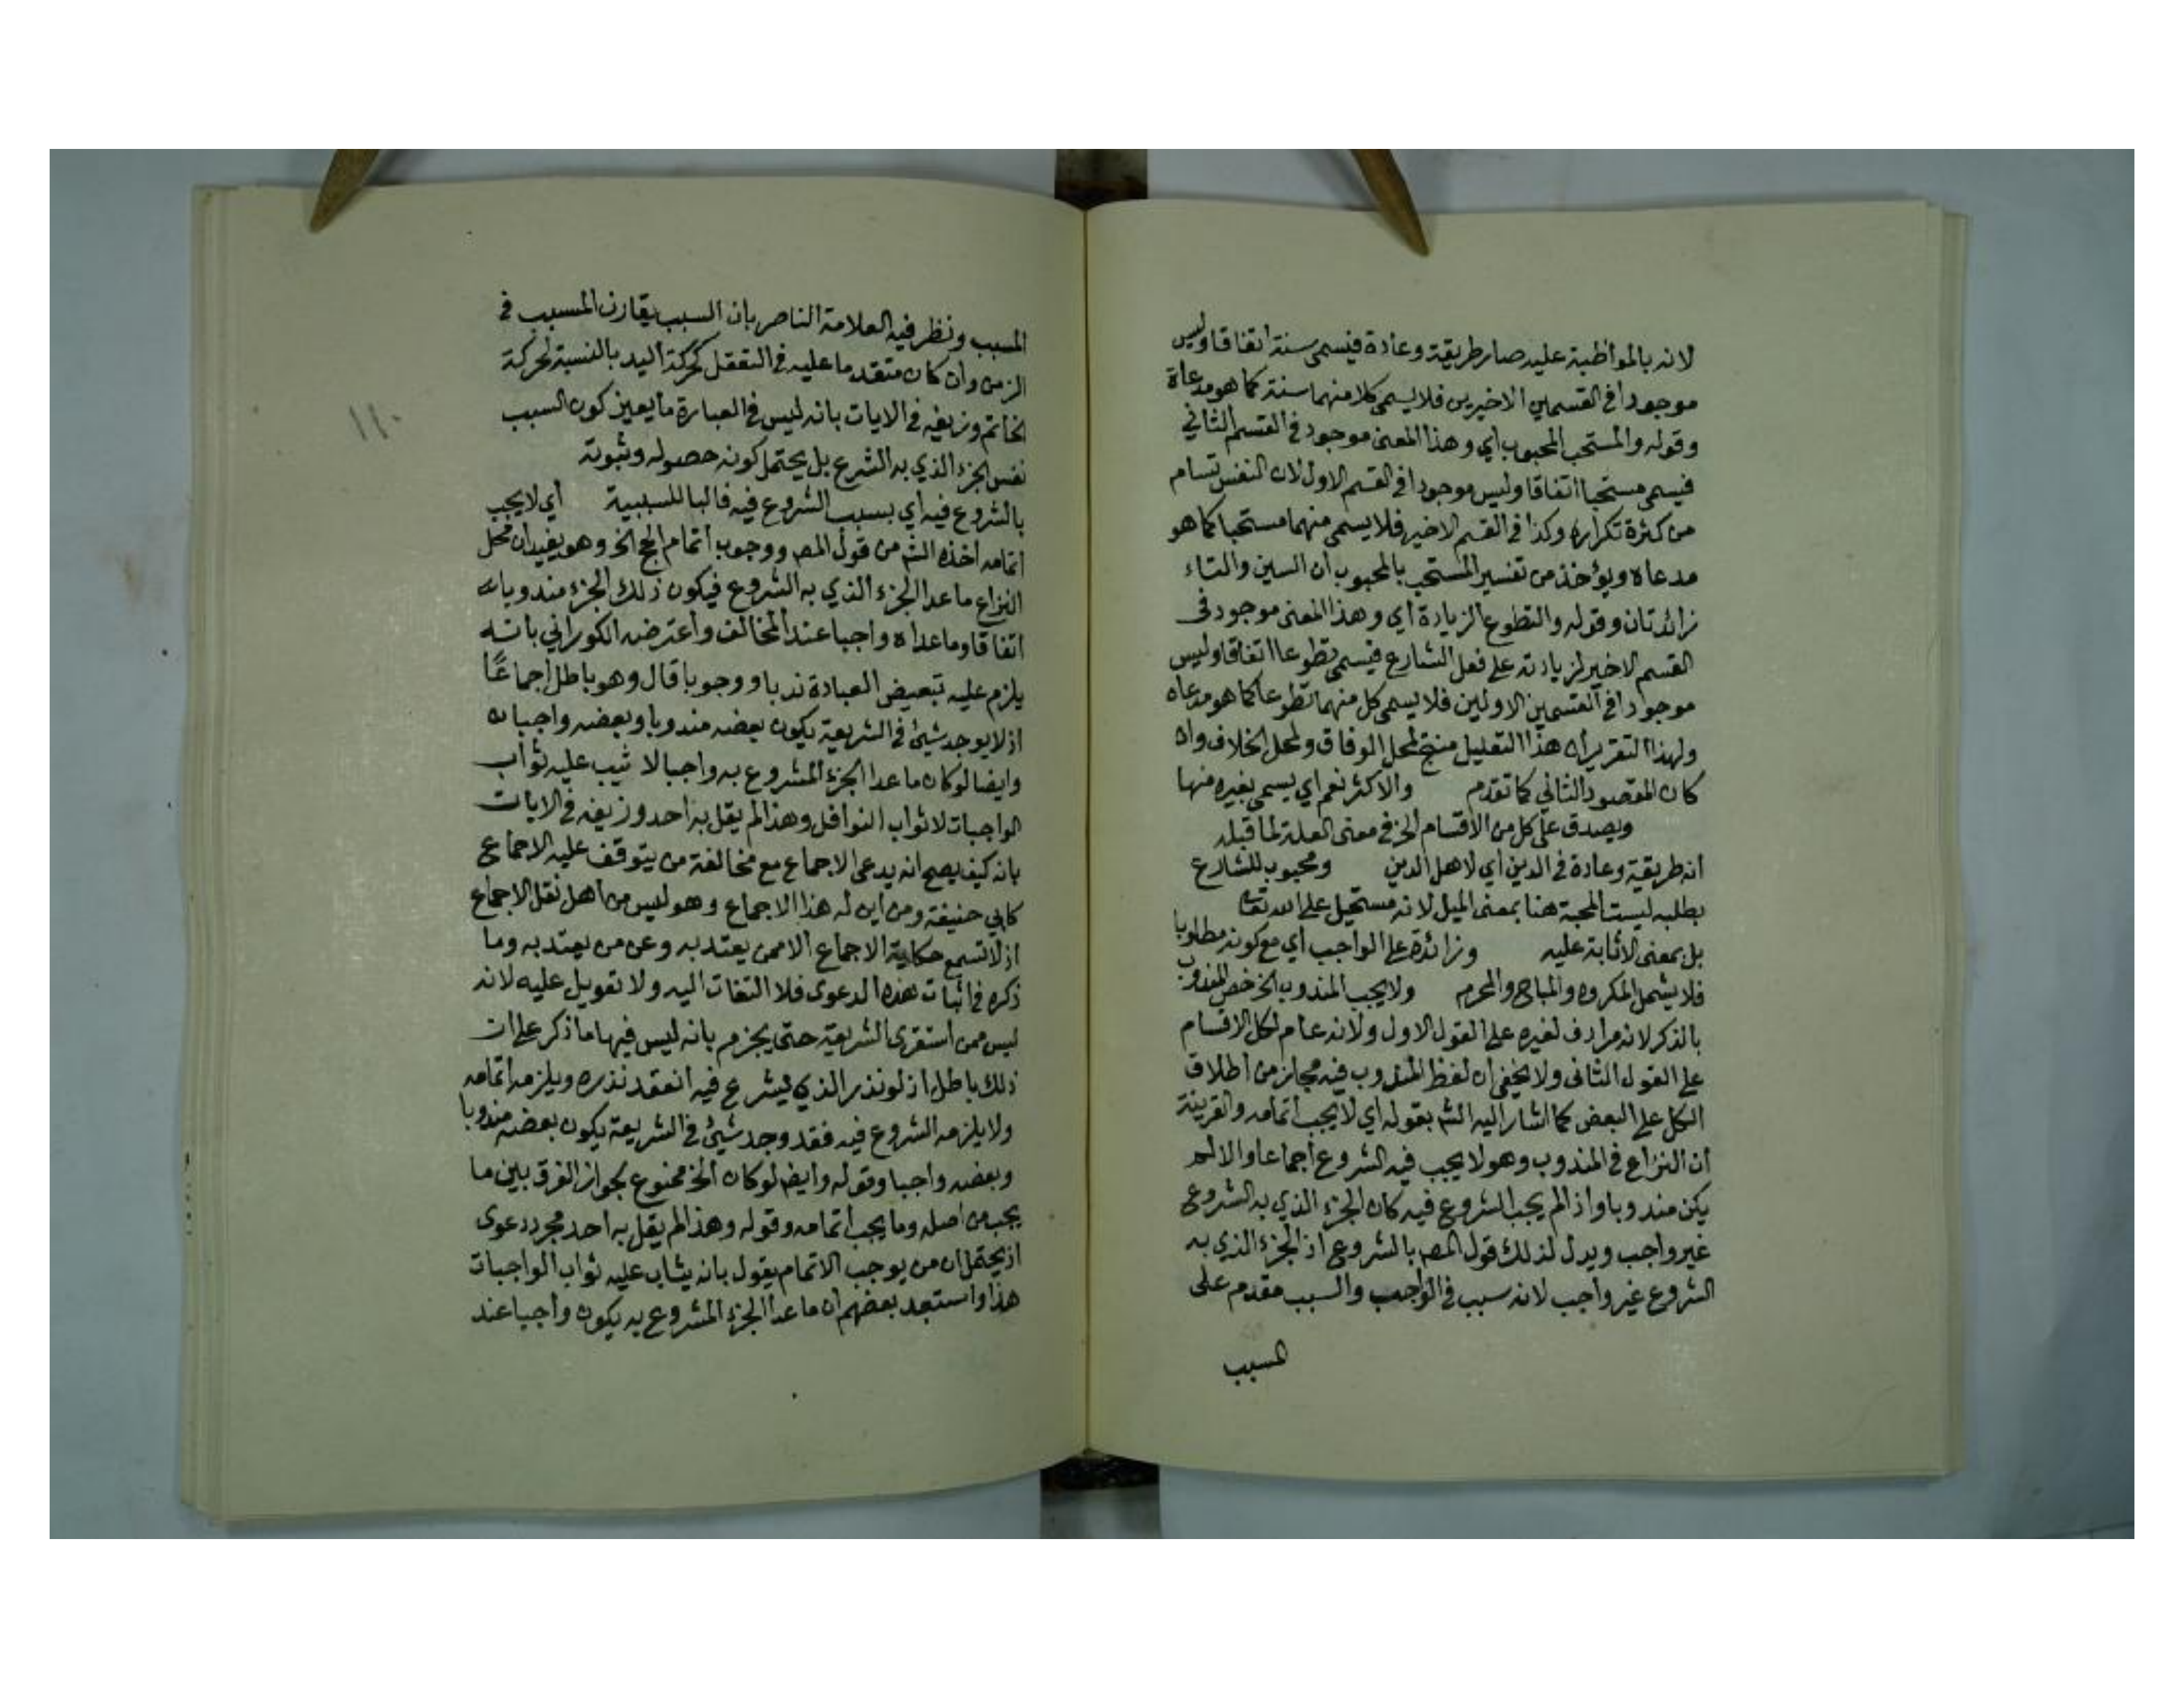 لانه بالمواظبة عليه صار طريقة وعادة فيسمى سنة اتفاقا وليس
موجودا في القسمين الاخيرين فلا يسمى كلا منهما سنة كما هو مدعاة
وقوله والمستحب المحبوب اي وهذا المعنى موجود في القسم الثاني
فيسمى مستحبا اتفاقا وليس موجودا في القسم الاول لان النفس تسام
من كثرة تكراره وكذا في القسم الاخير فلا يسمى منهما مستحبا كما هو
مدعاه ويؤخذ من تفسير المستحب بالمحبوب ان السين والتاء
زائدتان وقوله والتطوع الزيادة اي وهذا المعنى موجود في
القسم الاخير لزيادته على فعل الشارع فيسمى تطوعا اتفاقا وليس
موجودا في القسمين الاولين فلا يسمى كل منهما تطوعا كما هو مدعاه
ولهذا التقرير ان هذا التعليل منتج لمحل الوفاق ولمحل الخلاف وان
كان المقصود الثاني كما تقدم والاكثر نعم اي يسمى بغيره منها
ويصدق على كل من الاقسام الخ في معنى العلة لما قبله
انه طريقة وعادة في الدين اي لاهل الدين ومحبوب للشارع
بطلبه ليست المحبة هنا بمعنى الميل لانه مستحيل على الله تعا
بل بمعنى الاثابة عليه وزائدة على الواجب اي مع كونه مطلوبا
فلا يشمل المكروه والمباح والمحرم ولا يجب المندوب الخ خص المندوب
بالذكر لانه مرادف لغيره على القول الاول ولانه عام لكل الاقسام
على القول الثاني ولا يخفى ان لفظ المندوب فيه مجاز من اطلاق
الكل على البعض كما اشار اليه الش بقوله اي لا يجب اتمامه والقرينة
ان النزاع في المندوب وهو لا يجب فيه الشروع اجماعا والا لم
يكن مندوبا واذا لم يجب الشروع فيه كان الجزء الذي به الشروع
غير واجب ويدل لذلك قول المص بالشروع اذ الجزء الذي به
الشروع غير واجب لانه سبب في الواجب والسبب مقدم على
المسبب
المسبب ونظر فيه العلامة الناصر بان السبب يقارن المسبب في
الزمن وان كان متقدما عليه في التعقل كحركة اليد بالنسبة لحركة
الخاتم وزيفه في الايات بانه ليس في العبارة ما يعين كون السبب
نفس الجزء الذي به الشرع بل يحتمل كونه حصوله وثبوته
بالشروع فيه اي بسبب الشروع فيه فالبا للسببية اي لا يجب
اتمامه اخذه الش من قول المص ووجوب اتمام الحج الخ وهو يفيد ان محل
النزاع ما عدا الجزء الذي به الشروع فيكون ذلك الجزء مندوبا
اتفاقا وما عداه واجبا عند المخالف واعترضه الكوراني بانه
يلزم عليه تبعيض العبادة ندبا ووجوبا قال وهو باطل اجماعًا
اذ لا يوجد شيئ في الشريعة يكون بعضه مندوبا وبعضه واجبا
وايضا لو كان ما عدا الجزء المشروع به واجبا لاثيب عليه ثواب
الواجبات لا ثواب النوافل وهذا لم يقل به احد وزيفه في الايات
بانه كيف يصح انه يدعى الاجماع مع مخالفة من يتوقف عليه الاجماع
كابي حنيفة ومن اين له هذا الاجماع وهو ليس من اهل نقل الاجماع
اذ لا تسمع حكاية الاجماع الا ممن يعتد به وعن من يعتد به وما
ذكره في اثبات هذه الدعوى فلا التفات اليه ولا تعويل عليه لانه
ليس ممن استقرى الشريعة حتى يجزم بانه ليس فيها ما ذكر على ان
ذلك باطل اذ لو نذر الذي ليشرع فيه انعقد نذره ويلزمه اتمامه
ولا يلزمه الشروع فيه فقد وجد شيئ في الشريعة يكون بعضه مندوبا
وبعضه واجبا وقوله وايض لو كان الخ ممنوع لجواز الفرق بين ما
يجب من اصله وما يجب اتمامه وقوله وهذا لم يقل به احد مجرد دعوى
اذ يحتمل ان من يوجب الاتمام يقول بانه يثاب عليه ثواب الواجبات
هذا واستبعد بعضهم ان ما عدا الجزء المشروع به يكون واجبا عند
١١٠